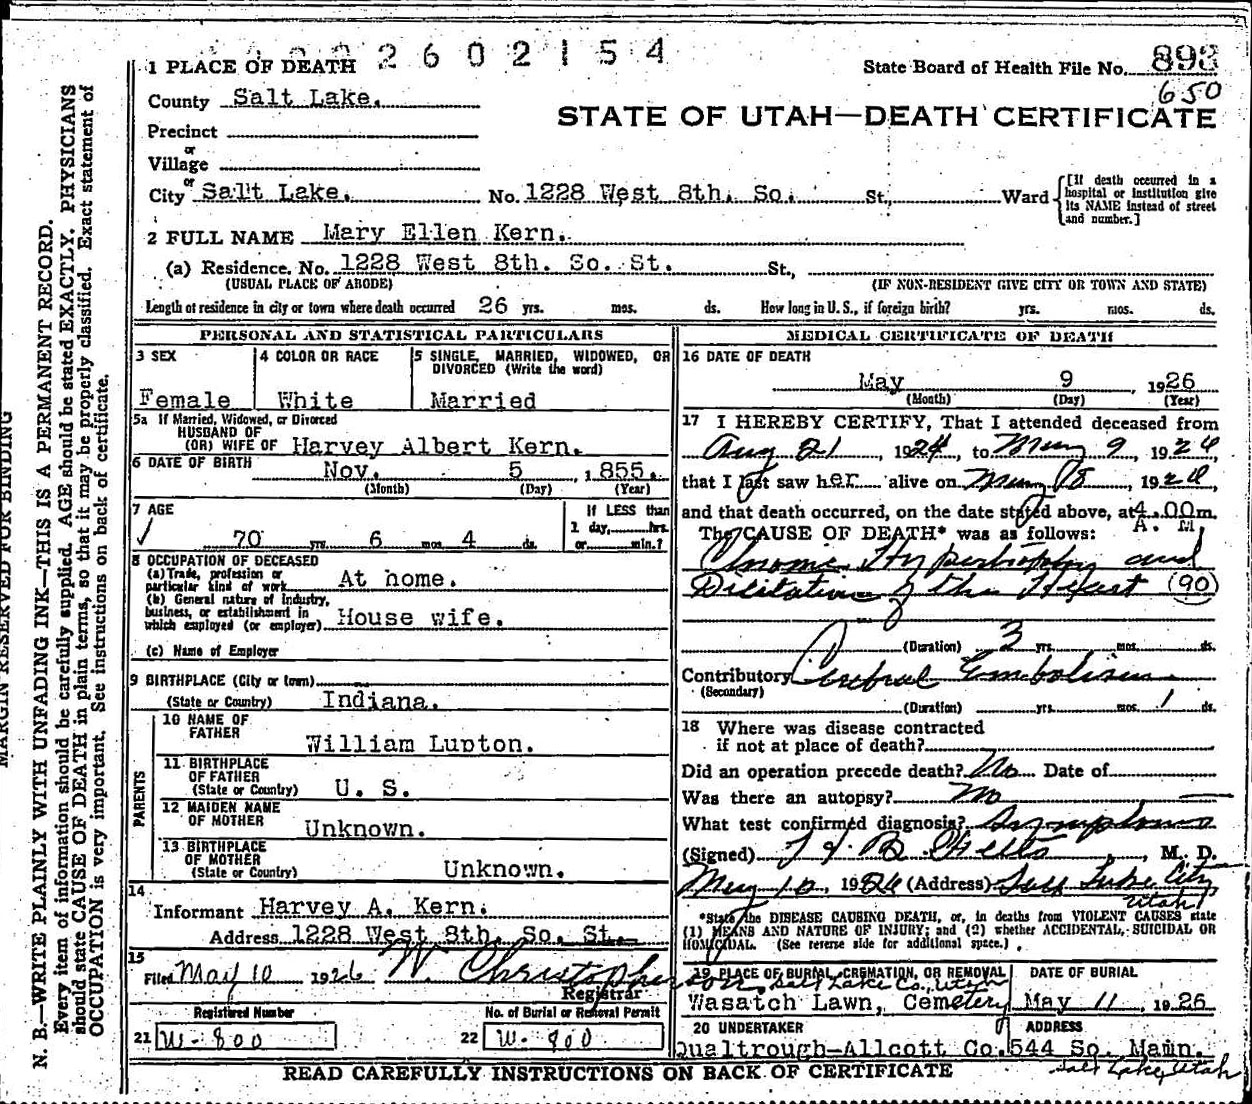 2 6 0 2 1 5 4
1 PLACE OF DEATH
State Board of Health File No. 893
650
County Salt Lake.
STATE OF UTAH—DEATH CERTIFICATE
Precinct
or
Village
or
City Salt Lake. No. 1228 West 8th. So. St., Ward
[If death occurred in a hospital or institution give its NAME instead of street and number.]
2 FULL NAME Mary Ellen Kern.
(a) Residence. No. 1228 West 8th. So. St. St.,
(USUAL PLACE OF ABODE) (IF NON-RESIDENT GIVE CITY OR TOWN AND STATE)
Length of residence in city or town where death occurred 26 yrs. mos. ds. How long in U. S., if foreign birth? yrs. mos. ds.
PERSONAL AND STATISTICAL PARTICULARS
3 SEX
Female
4 COLOR OR RACE
White
5 SINGLE, MARRIED, WIDOWED, OR
DIVORCED (Write the word)
Married
5a If Married, Widowed, or Divorced
HUSBAND OF
(OR) WIFE OF Harvey Albert Kern.
6 DATE OF BIRTH Nov. 5 , 1855.
(Month) (Day) (Year)
7 AGE
70 yrs. 6 mos. 4 ds.
If LESS than
1 day, hrs.
or min.?
8 OCCUPATION OF DECEASED
(a) Trade, profession or
particular kind of work At home.
(b) General nature of industry,
business, or establishment in
which employed (or employer) House wife.
(c) Name of Employer
9 BIRTHPLACE (City or town)
(State or Country) Indiana.
PARENTS
10 NAME OF
FATHER
William Lupton.
11 BIRTHPLACE
OF FATHER
(State or Country) U. S.
12 MAIDEN NAME
OF MOTHER
Unknown.
13 BIRTHPLACE
OF MOTHER
(State or Country) Unknown.
14
Informant Harvey A. Kern.
Address 1228 West 8th. So. St.
15
Filed May 10 1926 W. Christopherson.
Registrar
Registered Number
21 W-800
No. of Burial or Removal Permit
22 W. 800
MEDICAL CERTIFICATE OF DEATH
16 DATE OF DEATH
May 9 , 1926
(Month) (Day) (Year)
17 I HEREBY CERTIFY, That I attended deceased from
Aug 21 , 1924 to May 9 , 1926,
that I last saw her alive on May 8 , 1926,
and that death occurred, on the date stated above, at 4.00 m.
A. M.
The CAUSE OF DEATH* was as follows:
Chronic Hypertrophy and
Dilitation of the Heart (90)
(Duration) 3 yrs. mos. ds.
Contributory Cerebral Embolism
(Secondary)
(Duration) yrs. mos. 1 ds.
18 Where was disease contracted
if not at place of death?
Did an operation precede death? No Date of
Was there an autopsy? No
What test confirmed diagnosis? Symptoms
(Signed) , M. D.
May 10, 1926 (Address) Salt Lake City
Utah
*State the DISEASE CAUSING DEATH, or, in deaths from VIOLENT CAUSES state
(1) MEANS AND NATURE OF INJURY; and (2) whether ACCIDENTAL, SUICIDAL OR
HOMICIDAL. (See reverse side for additional space.)
19 PLACE OF BURIAL, CREMATION, OR REMOVAL
Salt Lake Co., Utah
Wasatch Lawn, Cemetery
DATE OF BURIAL
May 11 , 1926
20 UNDERTAKER
Qualtrough-Allcott Co.
ADDRESS
544 So. Main.
Salt Lake, Utah
READ CAREFULLY INSTRUCTIONS ON BACK OF CERTIFICATE
MARGIN RESERVED FOR BINDING
N. B.—WRITE PLAINLY WITH UNFADING INK—THIS IS A PERMANENT RECORD.
Every item of information should be carefully supplied. AGE should be stated EXACTLY. PHYSICIANS
should state CAUSE OF DEATH in plain terms, so that it may be properly classified. Exact statement of
OCCUPATION is very important. See instructions on back of certificate.